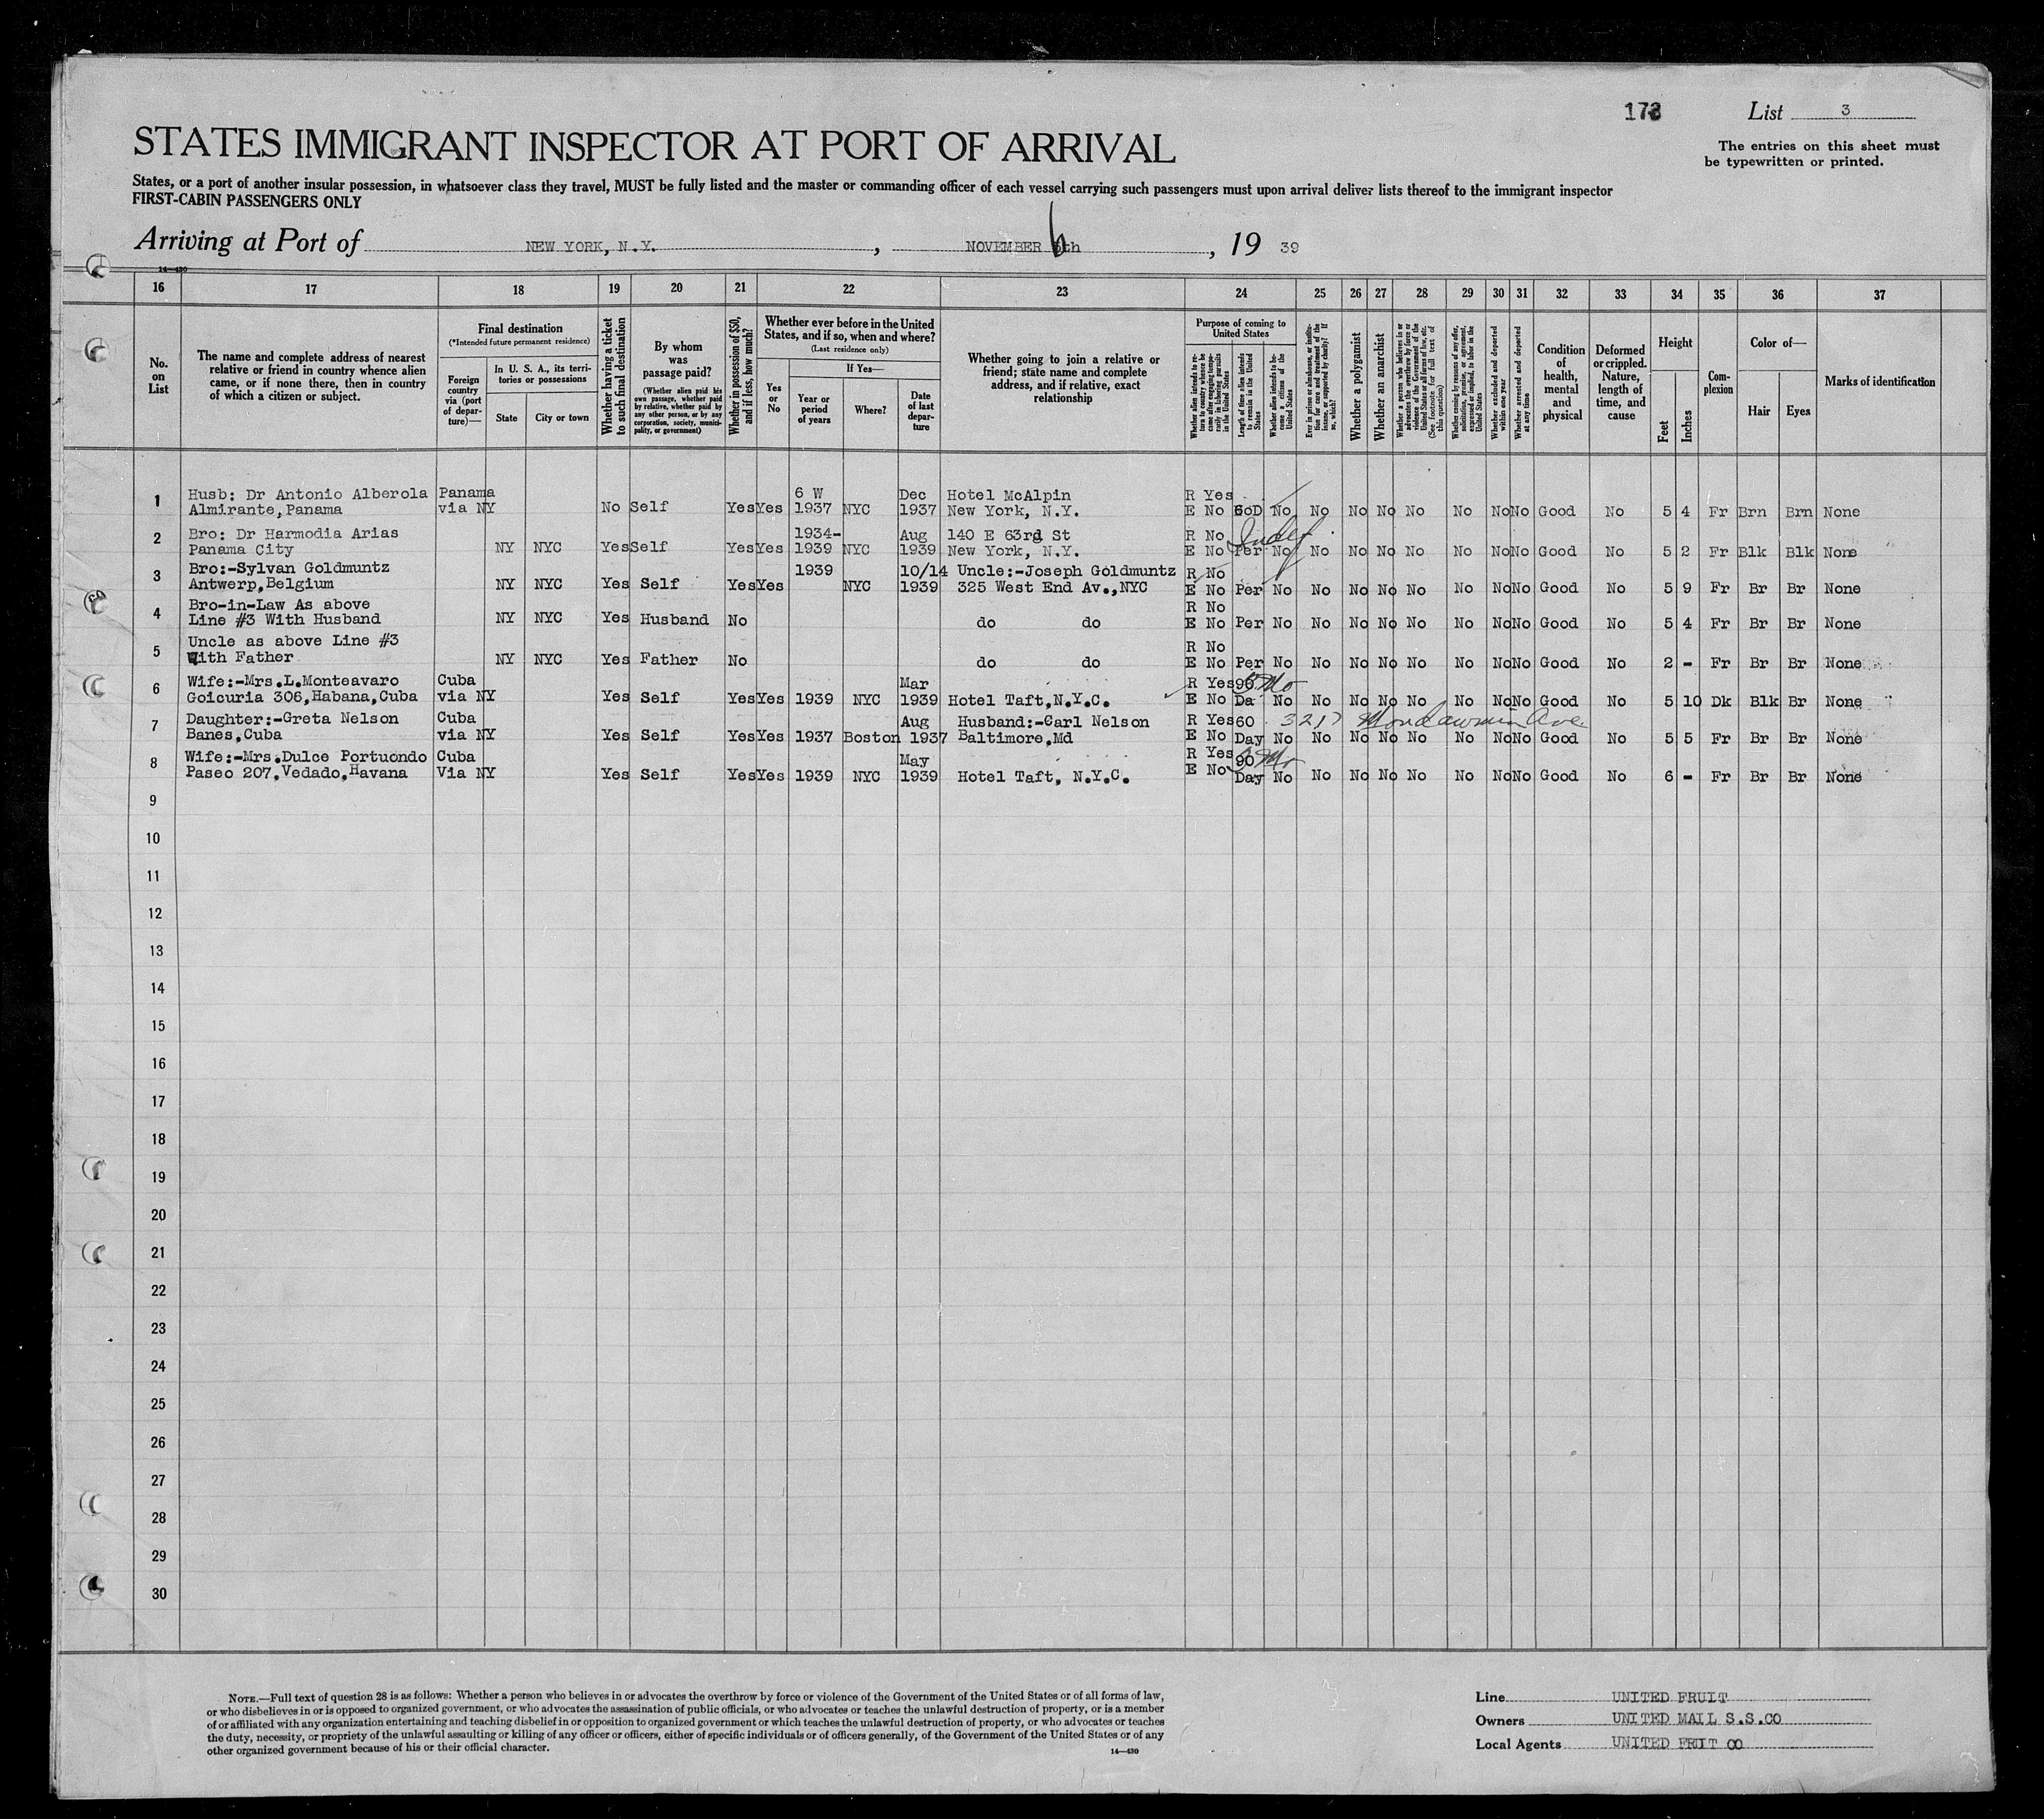 173 List 3
The entries on this sheet must
be typewritten or printed.
STATES IMMIGRANT INSPECTOR AT PORT OF ARRIVAL
States, or a port of another insular possession, in whatsoever class they travel, MUST be fully listed and the master or commanding officer of each vessel carrying such passengers must upon arrival deliver lists thereof to the immigrant inspector
FIRST-CABIN PASSENGERS ONLY
Arriving at Port of NEW YORK, N.Y. , NOVEMBER 6th , 19 39
14—430
16 17 18 19 20 21 22 23 24 25 26 27 28 29 30 31 32 33 34 35 36 37
No. on List
The name and complete address of nearest relative or friend in country whence alien came, or if none there, then in country of which a citizen or subject.
Final destination
(*Intended future permanent residence)
Foreign country via (port of departure)—
In U. S. A., its territories or possessions
State City or town
Whether having a ticket to such final destination
By whom was passage paid?
(Whether alien paid his own passage, whether paid by relative, whether paid by any other person, or by any corporation, society, municipality, or government)
Whether in possession of $50, and if less, how much?
Whether ever before in the United States, and if so, when and where?
(Last residence only)
Yes or No
If Yes—
Year or period of years
Where?
Date of last departure
Whether going to join a relative or friend; state name and complete address, and if relative, exact relationship
Purpose of coming to United States
Whether alien intends to return to country whence he came after engaging temporarily in laboring pursuits in the United States
Length of time alien intends to remain in the United States
Whether alien intends to become a citizen of the United States
Ever in prison or almshouse, or institution for care and treatment of the insane, or supported by charity? If so, which?
Whether a polygamist
Whether an anarchist
Whether a person who believes in or advocates the overthrow by force or violence of the Government of the United States or all forms of law, etc. (See footnote for full text of this question)
Whether coming by reason of any offer, solicitation, promise, or agreement, expressed or implied, to labor in the United States
Whether excluded and deported within one year
Whether arrested and deported at any time
Condition of health, mental and physical
Deformed or crippled. Nature, length of time, and cause
Height
Feet Inches
Complexion
Color of—
Hair Eyes
Marks of identification
Husb: Dr Antonio Alberola Panama 6 W Dec Hotel McAlpin R Yes
1 Almirante,Panama via NY No Self Yes Yes 1937 NYC 1937 New York, N.Y. E No 60D No No No No No No No No Good No 5 4 Fr Brn Brn None
Bro: Dr Harmodia Arias 1934- Aug 140 E 63rd St R No Indef.
2 Panama City NY NYC Yes Self Yes Yes 1939 NYC 1939 New York, N.Y. E No Per No No No No No No No No Good No 5 2 Fr Blk Blk None
Bro:-Sylvan Goldmuntz 1939 10/14 Uncle:-Joseph Goldmuntz R No
3 Antwerp,Belgium NY NYC Yes Self Yes Yes NYC 1939 325 West End Av.,NYC E No Per No No No No No No No No Good No 5 9 Fr Br Br None
Bro-in-Law As above R No
4 Line #3 With Husband NY NYC Yes Husband No do do E No Per No No No No No No No No Good No 5 4 Fr Br Br None
Uncle as above Line #3 R No
5 With Father NY NYC Yes Father No do do E No Per No No No No No No No No Good No 2 - Fr Br Br None
Wife:-Mrs.L.Monteavaro Cuba Mar R Yes 90 3 Mo
6 Goicuria 306,Habana,Cuba via NY Yes Self Yes Yes 1939 NYC 1939 Hotel Taft,N.Y.C. E No Da No No No No No No No No Good No 5 10 Dk Blk Br None
Daughter:-Greta Nelson Cuba Aug Husband:-Carl Nelson R Yes 60 3217 Mondawmin Ave
7 Banes,Cuba via NY Yes Self Yes Yes 1937 Boston 1937 Baltimore,Md E No Day No No No No No No No No Good No 5 5 Fr Br Br None
Wife:-Mrs.Dulce Portuondo Cuba May R Yes 90 3 Mo
8 Paseo 207,Vedado,Havana Via NY Yes Self Yes Yes 1939 NYC 1939 Hotel Taft, N.Y.C. E No Day No No No No No No No No Good No 6 - Fr Br Br None
9
10
11
12
13
14
15
16
17
18
19
20
21
22
23
24
25
26
27
28
29
30
NOTE.—Full text of question 28 is as follows: Whether a person who believes in or advocates the overthrow by force or violence of the Government of the United States or of all forms of law,
or who disbelieves in or is opposed to organized government, or who advocates the assassination of public officials, or who advocates or teaches the unlawful destruction of property, or is a member
of or affiliated with any organization entertaining and teaching disbelief in or opposition to organized government or which teaches the unlawful destruction of property, or who advocates or teaches
the duty, necessity, or propriety of the unlawful assaulting or killing of any officer or officers, either of specific individuals or of officers generally, of the Government of the United States or of any
other organized government because of his or their official character.
14—430
Line UNITED FRUIT
Owners UNITED MAIL S.S.CO
Local Agents UNITED FRUIT CO